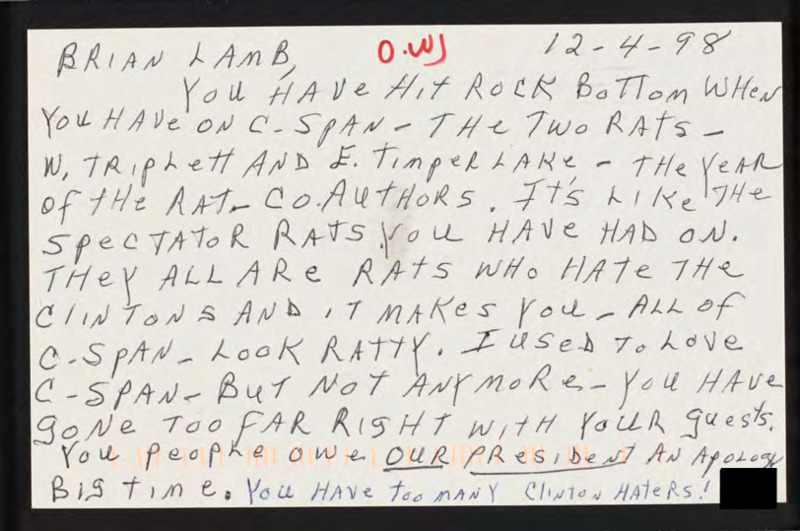 BRIAN LAMB, O.WJ 12-4-98
YOU HAVE HIT ROCK BOTTOM WHEN
YOU HAVE ON C-SPAN - THE TWO RATS -
W. TRIPLETT AND E. TIMPERLAKE - THE YEAR
OF THE RAT - CO.AUTHORS. IT'S LIKE THE
SPECTATOR RATS YOU HAVE HAD ON.
THEY ALL ARE RATS WHO HATE THE
CLINTONS AND IT MAKES YOU - ALL OF
C-SPAN - LOOK RATTY. I USED TO LOVE
C-SPAN - BUT NOT ANYMORE - YOU HAVE
GONE TOO FAR RIGHT WITH YOUR GUESTS.
YOU PEOPLE OWE OUR PRESIDENT AN APOLOGY
BIG TIME. YOU HAVE TOO MANY CLINTON HATERS!